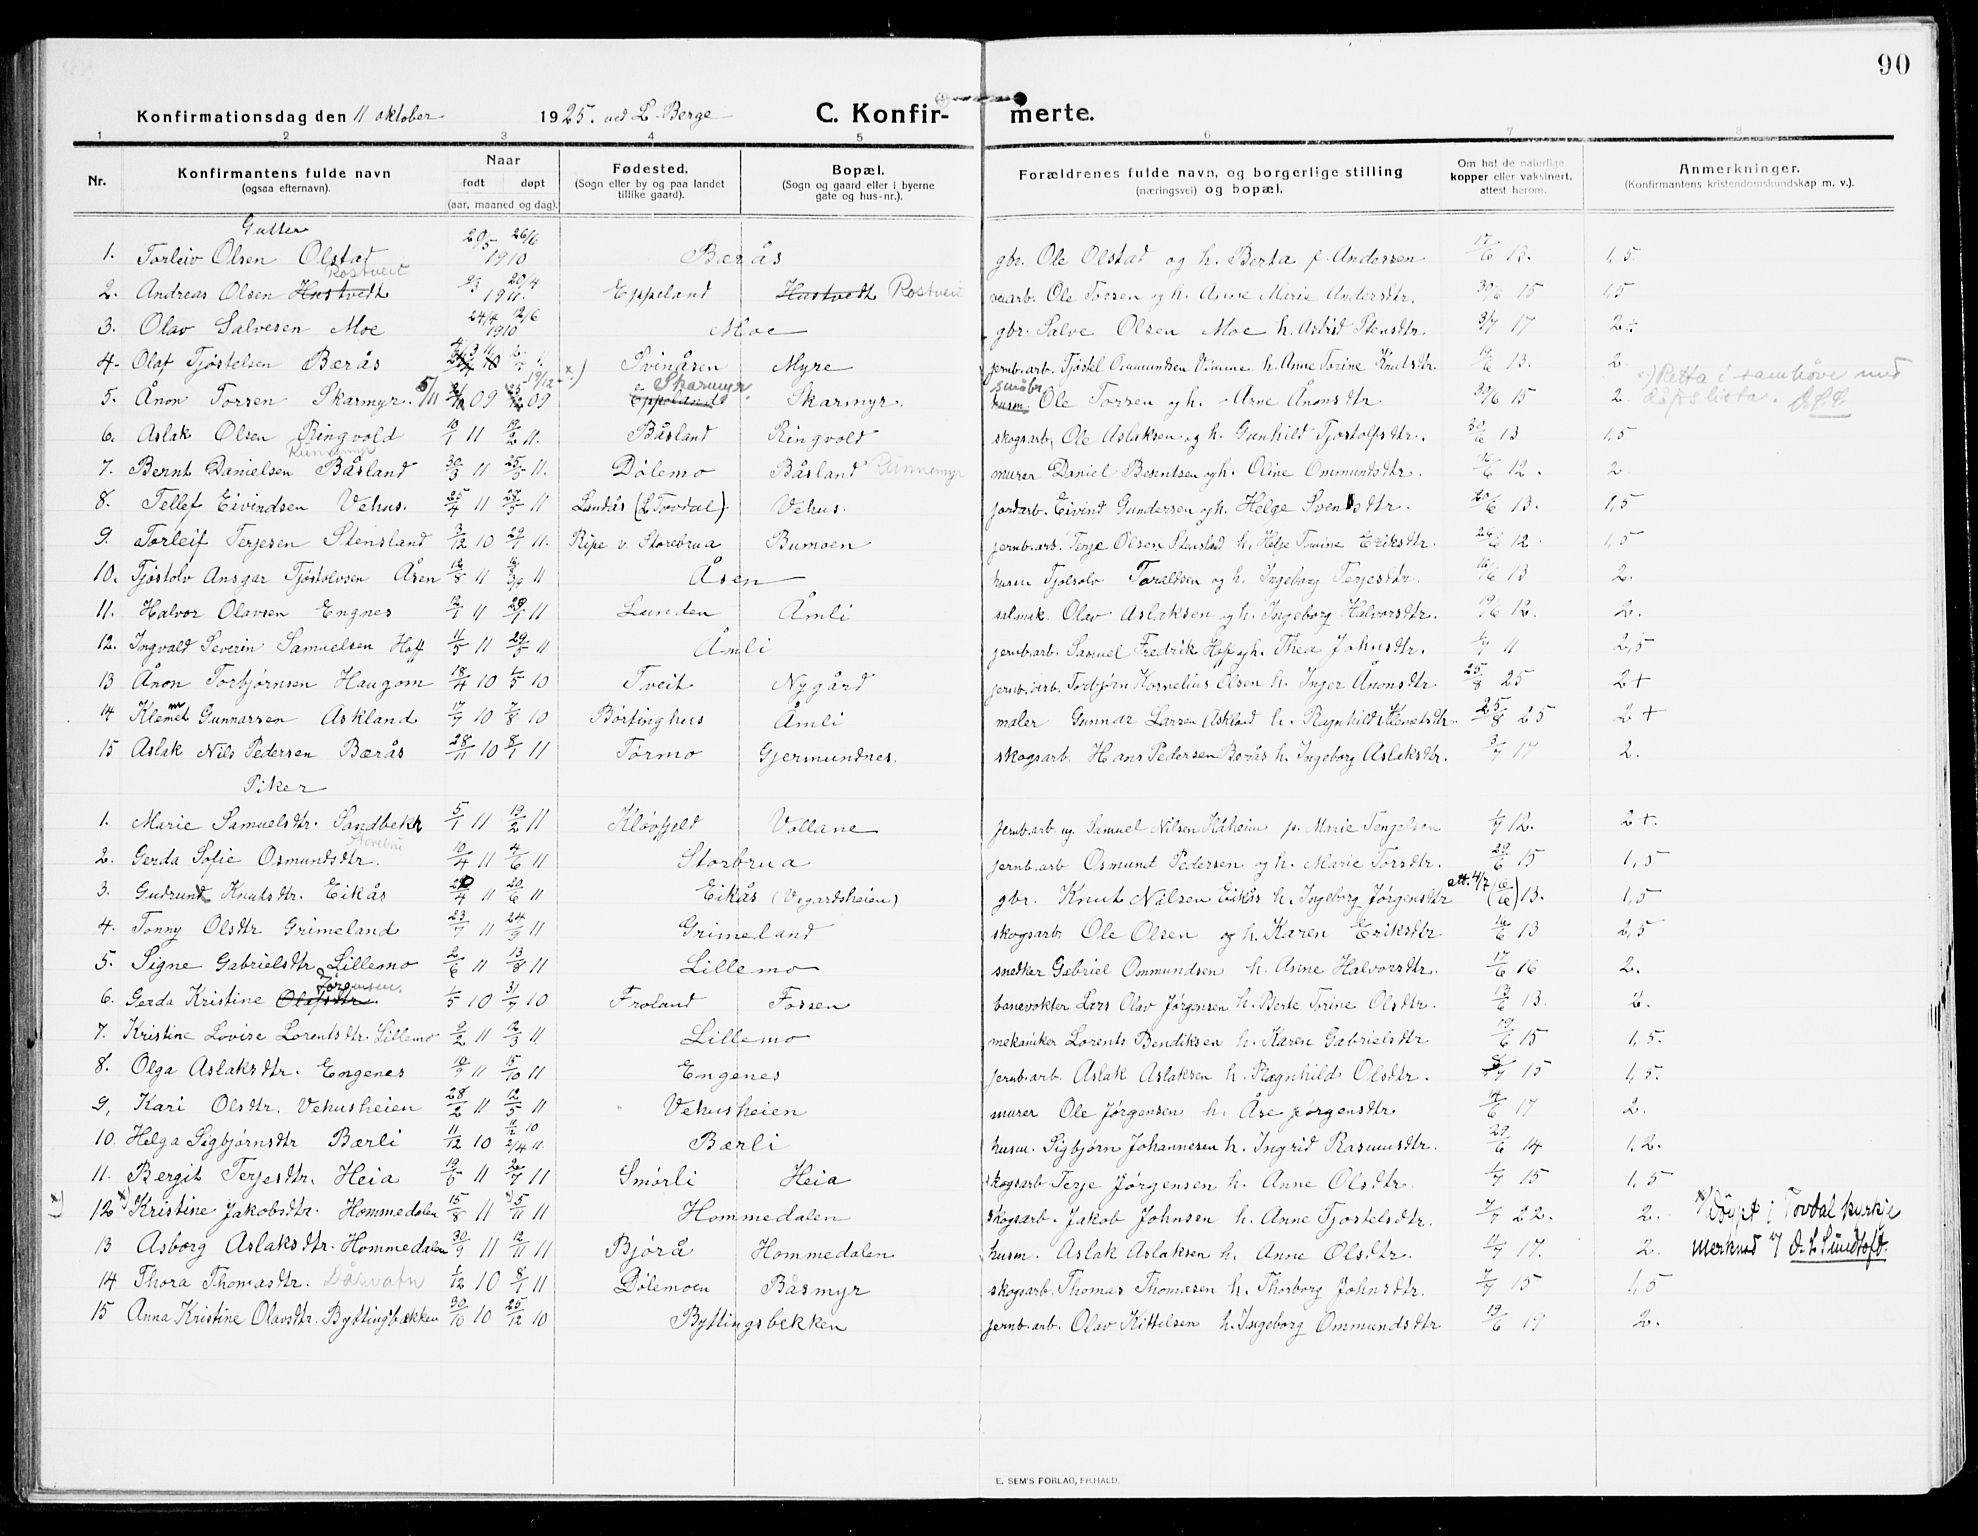 90
Konfirmationsdag den 11 oktober 1925. ved L. Berge C. Konfirmerte.
1 2 3 4 5 6 7 8
Nr. Konfirmantens fulde navn (ogsaa efternavn). Naar født døpt (aar, maaned og dag). Fødested. (Sogn eller by og paa landet tillike gaard). Bopæl. (Sogn og gaard eller i byerne gate og hus-nr.). Forældrenes fulde navn, og borgerlige stilling (næringsvei) og bopæl. Om hat de naturlige kopper eller vaksinert, attest herom. Anmerkninger. (Konfirmantens kristendomskundskap m. v.).
Gutter
1. Torleiv Olsen Olstad 29/5 26/6 1910 Bærås gbr. Ole Olstad og h. Berta f. Andersen 17/6 12. 1,5
2. Andreas Olsen Hustvedt Rostveit 9/3 20/4 1911. Eppeland Hustvedt Rostveit veiarb. Ole Torsen og h. Anne Marie Andersdtr. 30/6 15 1,5
3. Olav Salvesen Moe 24/4 12/6 1910 Moe gbr. Salve Olsen Moe h. Astrid Stensdtr. 3/7 17 2+
4. Olaf Tjøstelsen Bærås Svinåsen Myre jernb.arb. Tjøstel Ommundsen Vimme h. Anne Torine Knutsdtr. 19/6 13. 2
5. Ånon Torsen Skarmyr. 5/11 09 09 19/12 x) Eppeland Skarmyr. Skarmyr. husm småbr. Ole Torsen og h. Arne Ånonsdtr 30/6 15 2 x) Retta i samhøve med dåpslista.
6. Aslak Olsen Ringvold 10/1 11 19/2 11. Båsland Ringvold skogsarb. Ole Aslaksen og h. Gunhild Tjostolfsdtr. 30/6 13 1,5
7. Bernt Danielsen Båsland Runnemyr 30/3 11 25/5 11. Dölemo Båsland Runnemyr murer Daniel Berntsen og h. Oline Ommundsdtr. 12. 2
8. Tellef Eivindsen Vehus. 25/4 11 28/5 11 Landås (L. Tovdal). Vehus. jordarb. Eivind Gundersen og h. Helge Svensdtr. 20/6 13. 1,5
9. Torleif Terjesen Stensland 3/12 10 29/1 11. Ripe v. Storebrua Bumoen jernb.arb. Terje Olsen Stensland h. Helge Torine Eriksdtr. 26/6 12. 1,5
10. Tjøstolv Ansgar Tjøstolvsen Åsen 11 11 Åsen husm Tjostolv Taraldsen og h. Ingeborg Terjesdtr. 16/6 13 2.
11. Halvor Olavsen Engnes 11 11 Lunden Åmli salmak. Olav Aslaksen og h. Ingeborg Halvorsdtr. 19/6 12. 2.
12. Ingvald Severin Samuelsen Hoff 11/5 11 29/5 11 Åmli jernb.arb. Samuel Fredrik Hoff og h. Thea Johnsdtr. 11 2,5
13 Ånon Torbjørnsen Haugom 18/4 10 1/5 10 Tveit Nygård jernb.arb. Torbjørn Kornelius Olsen h. Inger Ånonsdtr 25/8 25 2+
14 Klemmet Gunnarsen Askland 17/7 10 7/8 10 Börtinghus Åmli maler Gunnar Larsen Askland h. Ragnhild Klemetsdtr. 25/8 25 2+
15 Aslak Nils Pedersen Bærås 28/11 10 8/1 11 Tørmo Gjermundnes. skogsarb. Hans Pedersen Berås h. Ingeborg Aslaksdtr. 3/7 17 2.
Piker
1. Marie Samuelsdtr. Sandbekk 5/1 11 19/2 11 Kløvfjeld Vollane jernb.arb. ug. Samuel Nilsen Håheim p. Marie Tengelsen 1/7 12. 2+.
2. Gerda Sofie Osmundsdtr. Storebru 10/4 11 4/6 11 Storbrua jernb.arb Osmund Pedersen og h. Marie Torsdtr. 29/6 15 1,5
3. Gudrun Knutsdtr. Eikås 11 20/6 11 Eikås (Vegardsheien) gbr. Knut Nilsen Eikås h. Ingeborg Jørgensdtr att. 4/7 13. 1,5
4. Tonny Olsdtr Grimeland 23/7 11 24/9 11 Grimeland skogsarb. Ole Olsen og h. Karen Eriksdtr 16/6 13 2,5
5. Signe Gabrielsdtr Lillemo 2/6 11 13/8 11 Lillemo snedker Gabriel Ommundsen h. Anne Halvorsdtr. 17/6 16 2.
6. Gerda Kristine Olafsdtr. Jörgensen 1/5 10 31/7 10 Froland Fossen banevokter Lars Olav Jørgensen h. Berte Torine Olsdtr. 13/6 13. 2.
7. Kristine Lovise Lorentsdtr. Lillemo 9/2 11 12/3 11 Lillemo mekaniker Lorents Bendiksen h. Karen Gabrielsdtr 19/6 15 1,5.
8. Olga Aslaksdtr. Engenes 11 15/10 11 Engenes jernb.arb. Aslak Aslaksen h. Ragnhild Olsdtr. 15 1,5.
9, Kari Olsdtr. Vehusheien 28/2 11 12/5 11 Vehusheien murer Ole Jørgensen h. Åse Jørgensdtr 14/6 17 2.
10. Helga Sigbjørnsdtr Bærli 11/12 10 11/12 10 2/4 11. Bærli husm. Sigbjørn Johannesen h. Ingrid Rasmusdtr. 29/6 14 1,2.
11. Bergit Terjesdtr. Heia 19/5 11 2/7 11 Smørli Heia skogsarb Terje Jørgensen h. Anne Olsdtr. 1/7 15 1,5
12 x) Kristine Jakobsdtr. Hommedalen 15/8 11 x) 5/11 11 Hommedalen skogsarb. Jakob Johnsen h. Anne Tjostelsdtr. 7/7 22. 2. x) Döypt i Tovdal kyrkje
13 Asborg Aslaksdtr. Hommedalen 30/9 11 12/11 11 Bjørå Hommedalen husm. Aslak Aslaksen h. Anne Olsdtr. 1/7 17. 2. merknad v/ O. L. Sundtoft.
14 Thora Thomasdtr. Dåsvatn 1/12 10 8/1 11 Dölemoen Båsmyr skogsarb. Thomas Thomasen h. Thorborg Johnsdtr. 7/7 15 1,5
15 Anna Kristine Olavsdtr. Byttingsbekken 30/10 10 25/12 10 Byttingsbekken jernb.arb. Olav Kittelsen h. Ingeborg Ommundsdtr 19/6 19 2.
E. SEM'S FORLAG, FR.HALD.